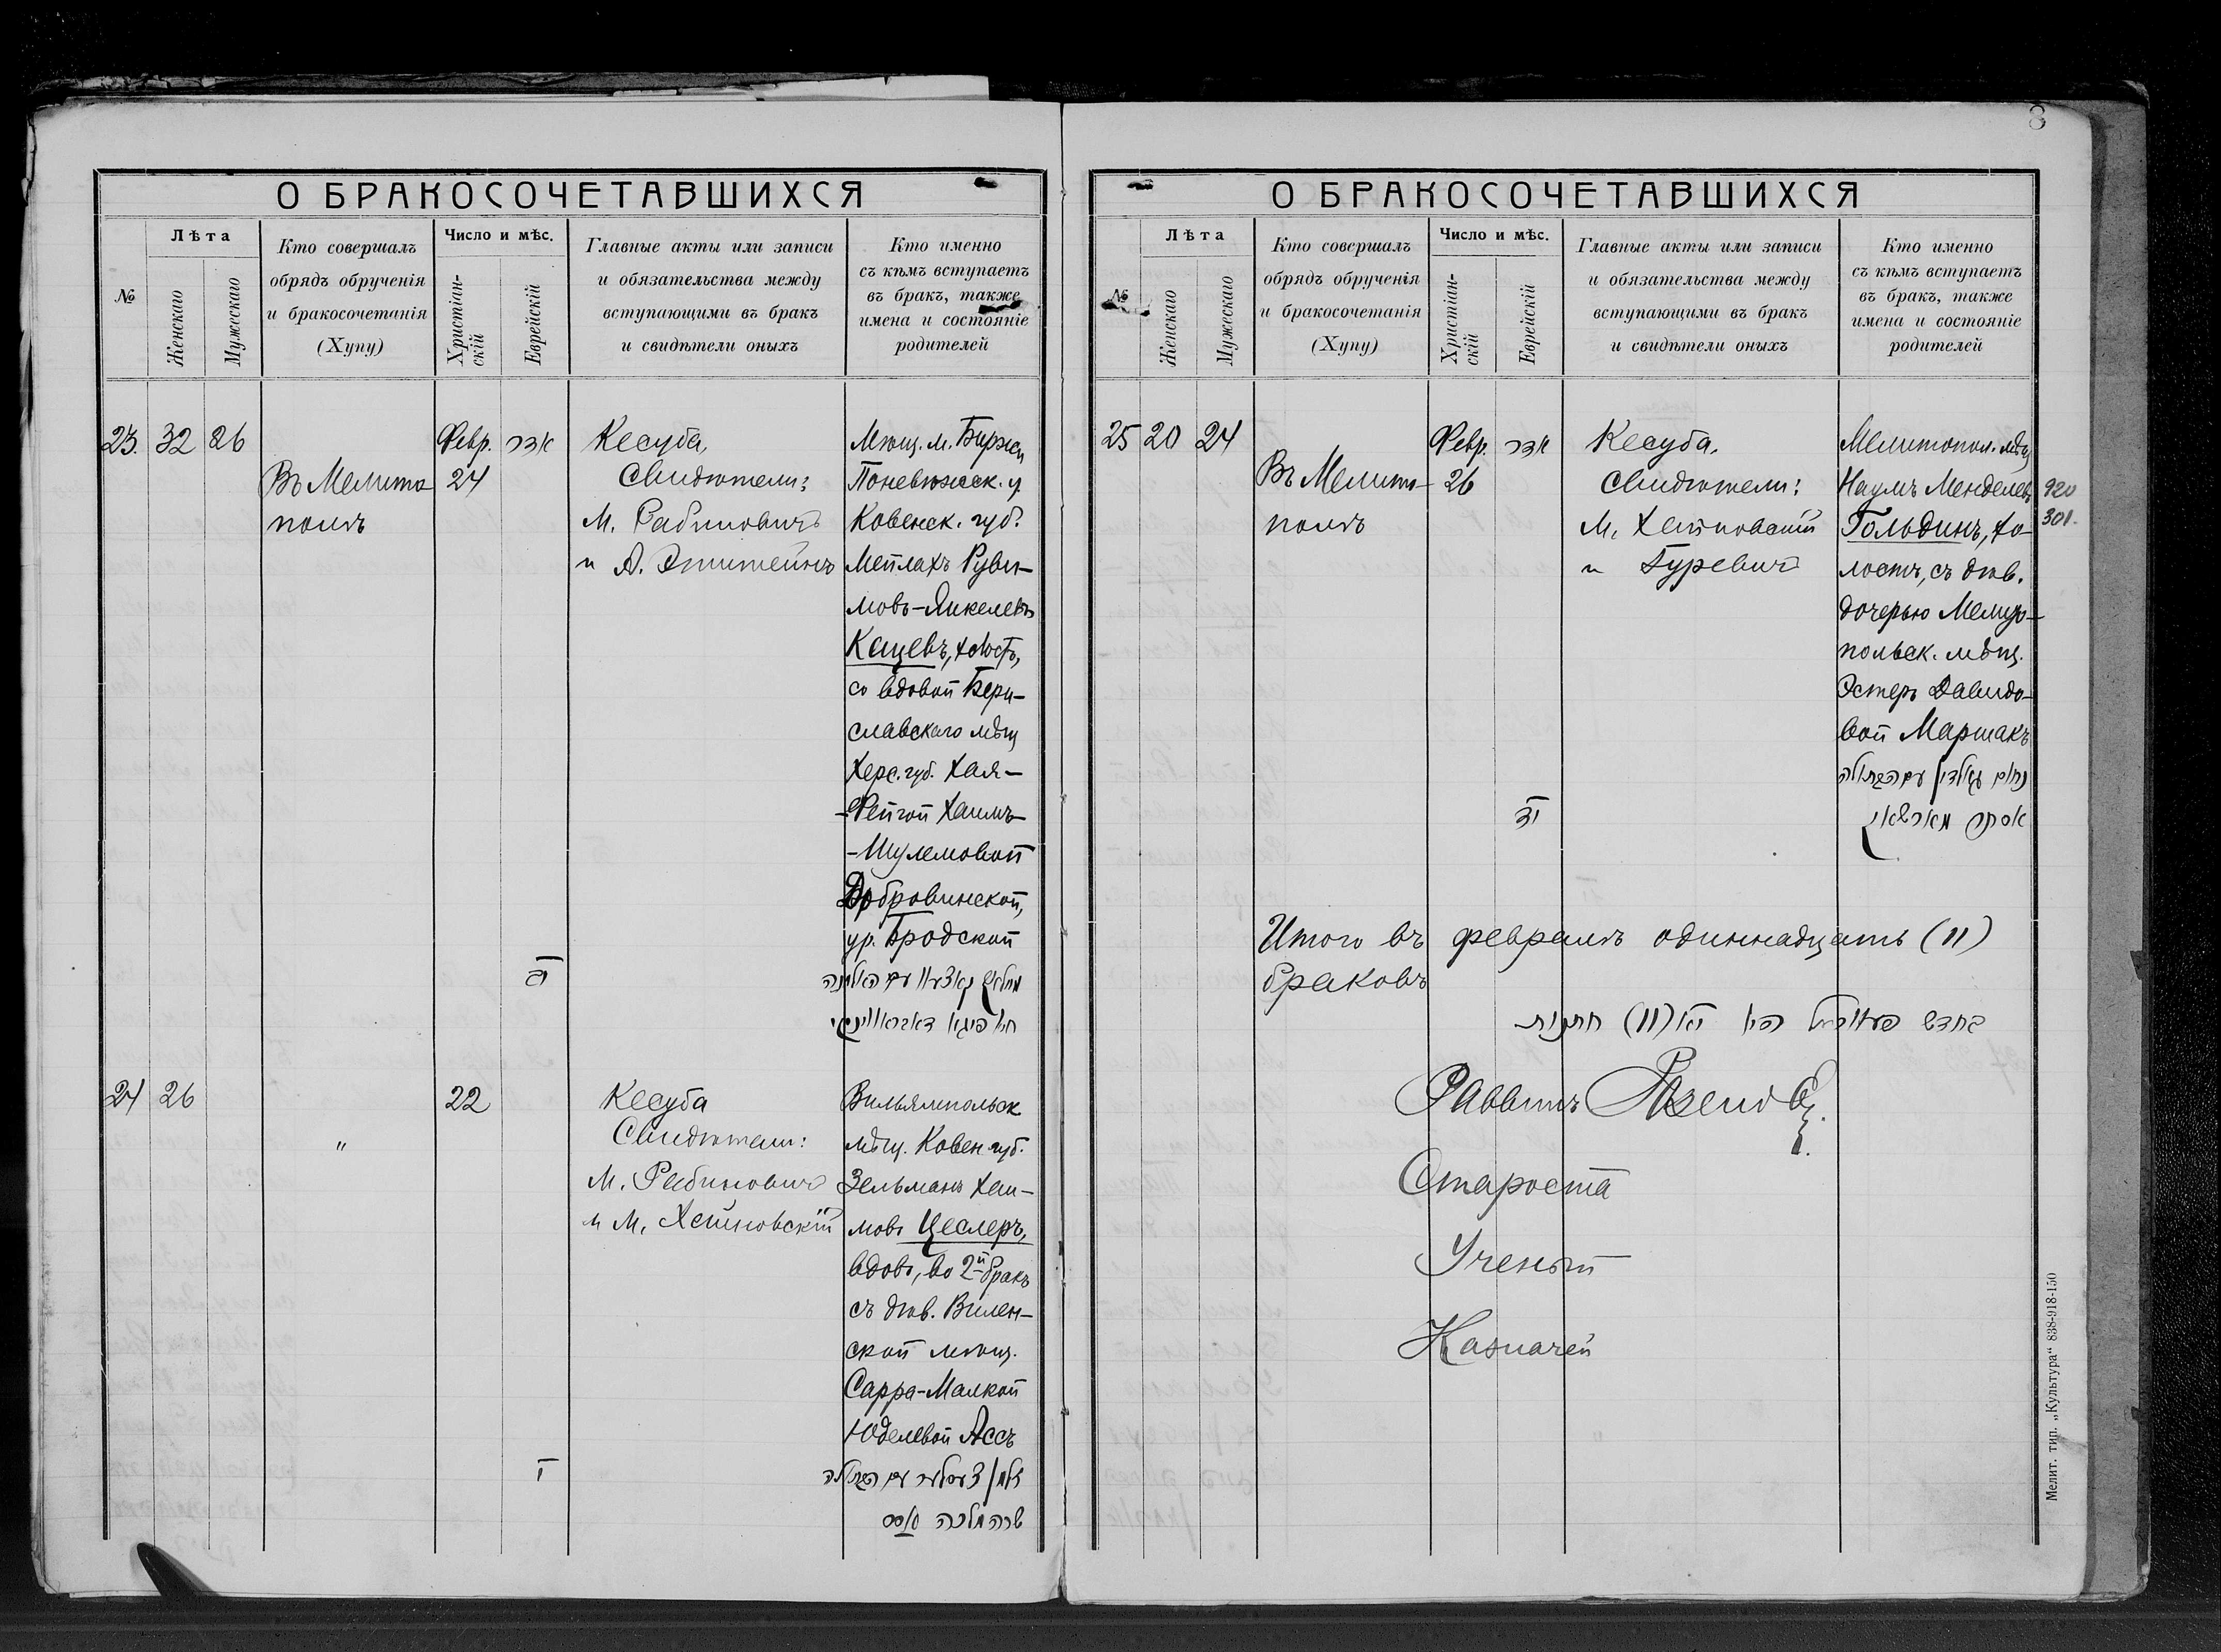 8
О БРАКОСОЧЕТАВШИХСЯ
№
Лѣта
Женскаго
Мужескаго
Кто совершалъ
обрядъ обрученія
и бракосочетанія
(Хупу)
Число и мѣс.
Христіан-
скій
Еврейскій
Главные акты или записи
и обязательства между
вступающими въ бракъ
и свидѣтели оныхъ
Кто именно
съ кѣмъ вступаетъ
въ бракъ, также
имена и состояніе
родителей
23. 32 26
Въ Мелито-
полѣ
Февр.
24
אדר
ה
Кесуба,
Свидѣтели:
М. Рабиновичъ
и А. Эпштейнъ
Мѣщ. м. Биржи
Поневѣжск. у.
Ковенск. губ.
Мейлахъ Руви-
мовъ-Янкелевъ
Кацевъ, холост,
со вдовой Бери-
славскаго мѣщ
Херс. губ. Хая-
-Фейгой Хаимъ-
-Шулемовой
Добровинской,
ур. Бродской
עם האלמנה
חי' פיגא
24 26
"
22
Кесуба
Свидѣтели:
М. Рабиновичъ
и М. Хейновскій
Вильямпольск
мѣщ. Ковен. губ.
Зельманъ Хаи-
мовъ Цеслеръ,
вдовъ, во 2й бракъ
съ дѣв. Вилен-
ской мѣщ.
Сарра-Малкой
Юделевой Ассъ
עם הבתולה
שרה מלכה אסס
О БРАКОСОЧЕТАВШИХСЯ
№
Лѣта
Женскаго
Мужескаго
Кто совершалъ
обрядъ обрученія
и бракосочетанія
(Хупу)
Число и мѣс.
Христіан-
скій
Еврейскій
Главные акты или записи
и обязательства между
вступающими въ бракъ
и свидѣтели оныхъ
Кто именно
съ кѣмъ вступаетъ
въ бракъ, также
имена и состояніе
родителей
25 20 24
Въ Мелито-
полѣ
Февр.
26
אדר
Кесуба.
Свидѣтели:
М. Хейновскій
и Гуревичъ
Мелитопол. мѣщ
Наумъ Менделевъ
Гольдинъ, хо-
лостъ, съ дѣв.
дочерью Мелито-
польск. мѣщ.
Эстеръ Давидо-
вой Маршакъ
נחום גאלדין עם הבתולה
אסתר מארשאק
920
301.
Итого въ февралѣ одиннадцать (11)
браковъ
(11)
Раввинъ
Староста
Ученый
Казначей
Мелит. тип. „Культура“ 838-918-150